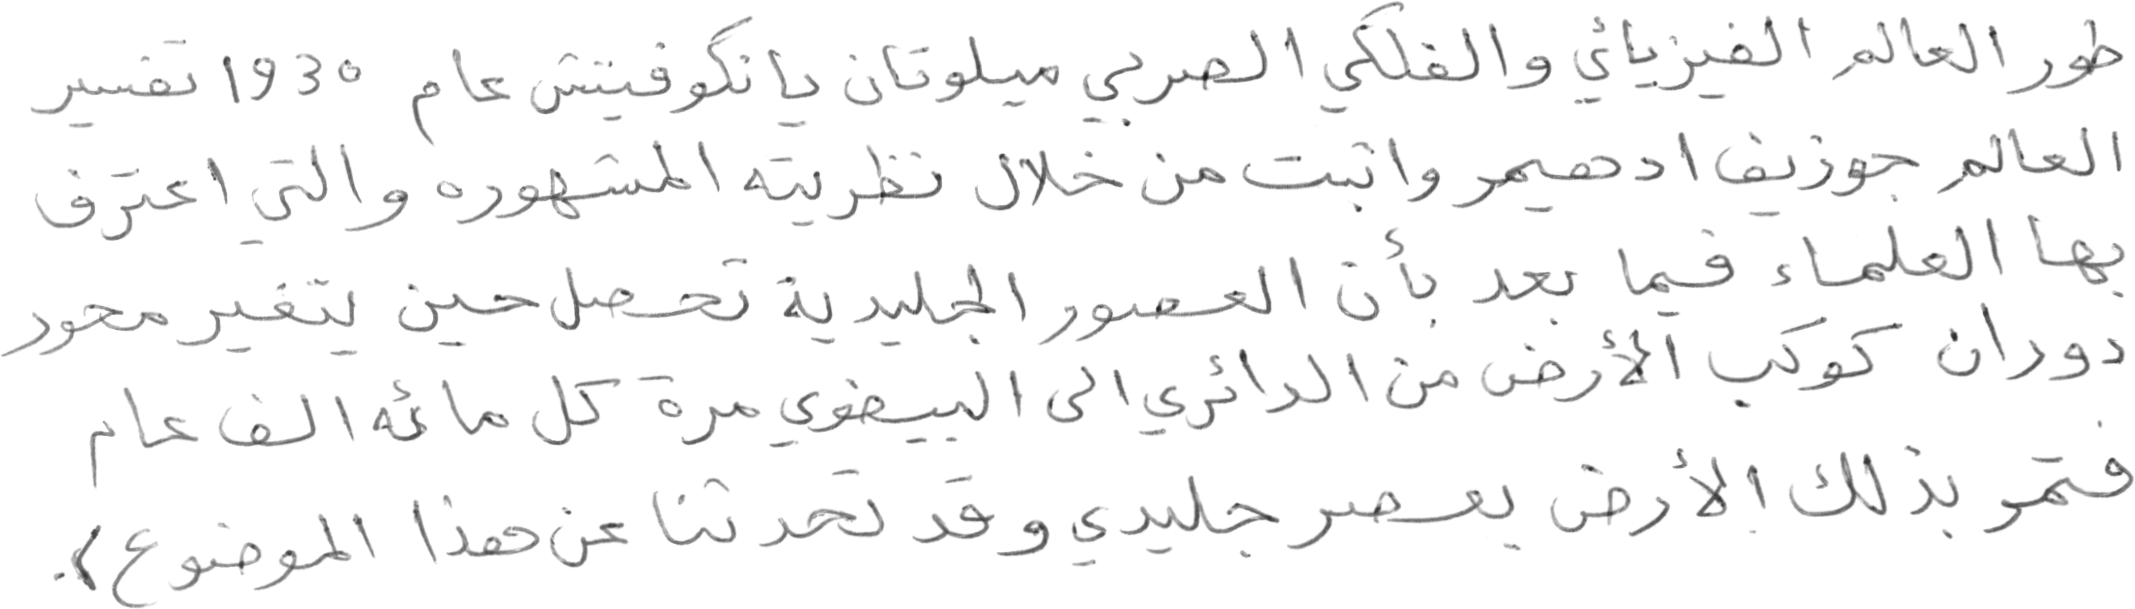 طور العالم الفيزيائي والفلكي الصربي ميلوتان يانكوفيتش عام 1930 تفسير
العالم جوزيف ادهيمر واثبت من خلال نظريته المشهوره والتي اعترف
بها العلماء فيما بعد بأن العصور الجليدية تحصل حين يتغير محور
دوران كوكب الأرض من الدائري الى البيضوي مرة كل مائه الف عام
فتمر بذلك الأرض بعصر جليدي وقد تحدثنا عن هذا الموضوع).